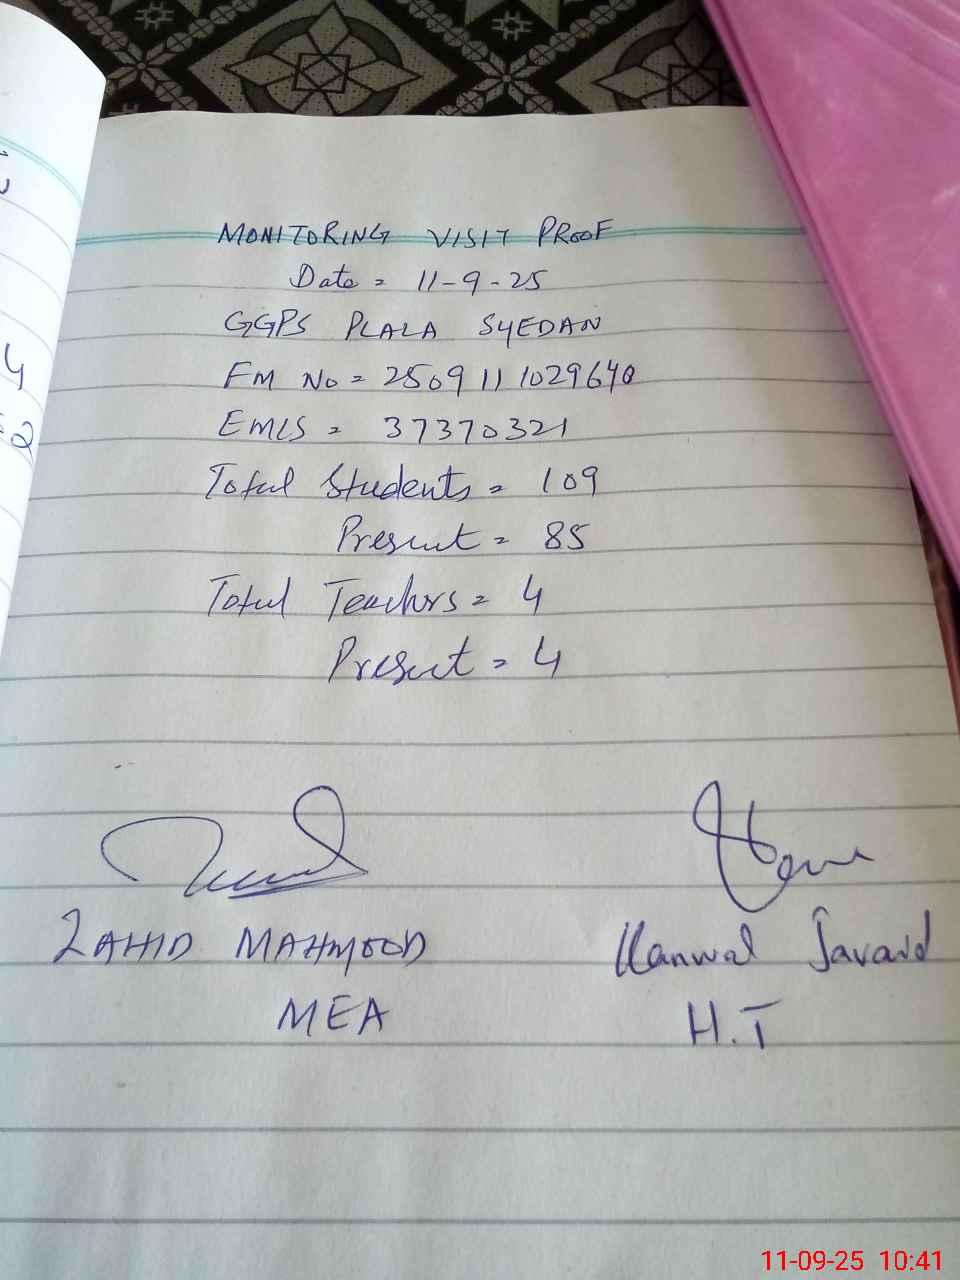 MONITORING VISIT PROOF
Date = 11-9-25
GGPS PLALA SYEDAN
FM No = 2509111029640
EMIS = 37370321
Total Students = 109
Present = 85
Total Teachers = 4
Present = 4
ZAHID MAHMOOD
MEA
Kanwal Javaid
H.T
4
2
11-09-25 10:41